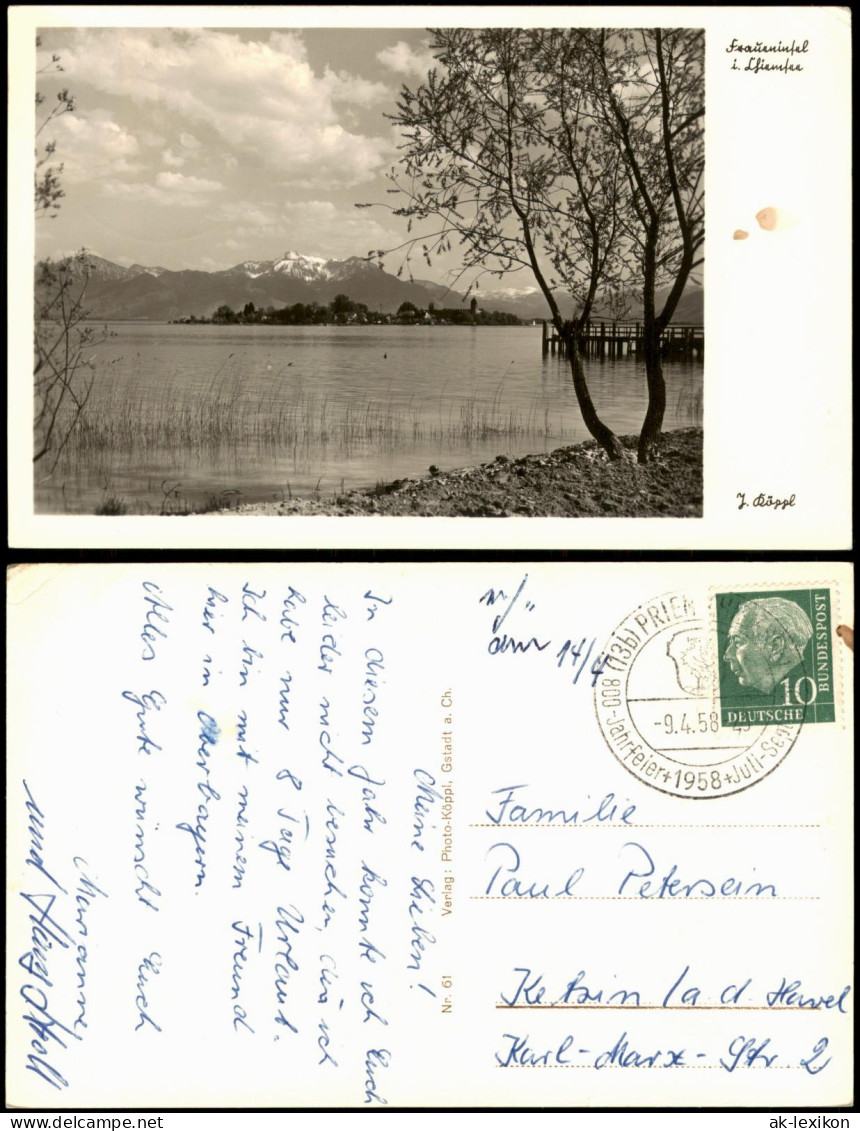 Fraueninsel
i. Chiemsee
J. Köppl
Meine Lieben!
In diesem Jahr konnte ich Euch
leider nicht besuchen, da ich
habe nur 8 Tage Urlaub.
Ich bin mit meinem Freund
hier in Oberbayern.
Alles Gute wünscht Euch
Marianne,
und
Nr. 61 Verlag: Photo-Köppl, Gstadt a. Ch.
14/4
(13b) PRIEN
-9.4.58
-Jahrfeier+1958+Juli-Sep
DEUTSCHE
BUNDESPOST
10
Familie
Paul Petersein
Ketzin /a. d. Havel
Karl-Marx-Str. 2
ak-lexikon